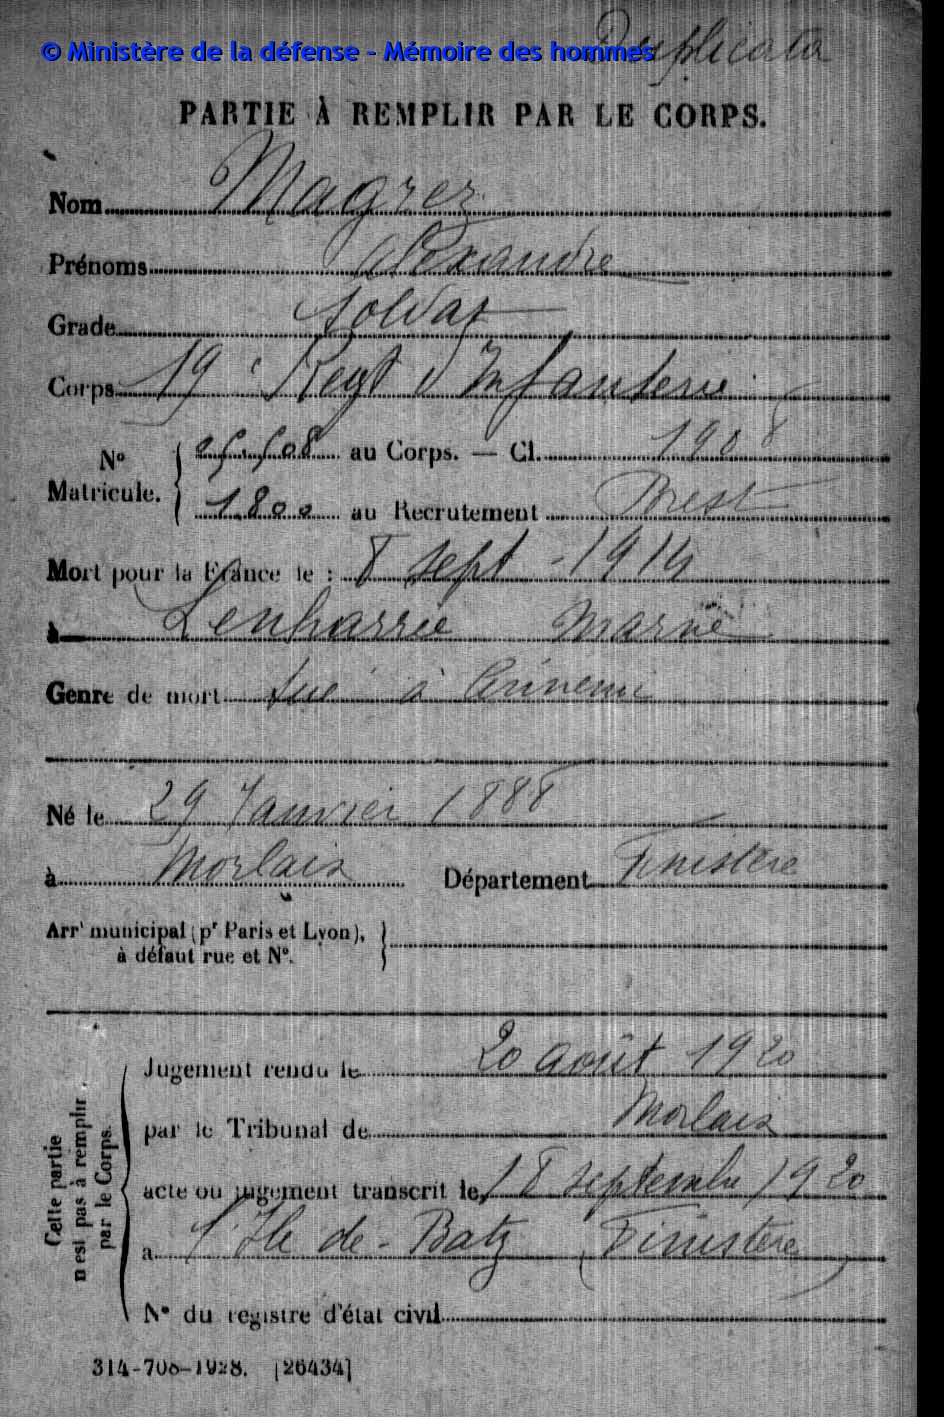 Duplicata
© Ministère de la défense - Mémoire des hommes
PARTIE À REMPLIR PAR LE CORPS.
Nom Magrez
Prénoms Alexandre
Grade Soldat
Corps 19e Regt d'Infanterie
No Matricule. { 508 au Corps. — Cl. 1908
1800 au Recrutement Brest
Mort pour la France le : 8 sept - 1914
à Lenharrée Marne
Genre de mort tué à l'ennemi
Né le 29 Janvier 1888
à Morlaix Département Finistère
Arrt municipal (pr Paris et Lyon),
à défaut rue et No.
Cette partie n'est pas à remplir par le Corps.
Jugement rendu le 20 août 1920
par le Tribunal de Morlaix
acte ou jugement transcrit le 18 septembre 1920
à l'Ile de-Batz (Finistère)
No du registre d'état civil
314-708-1928. [26434]